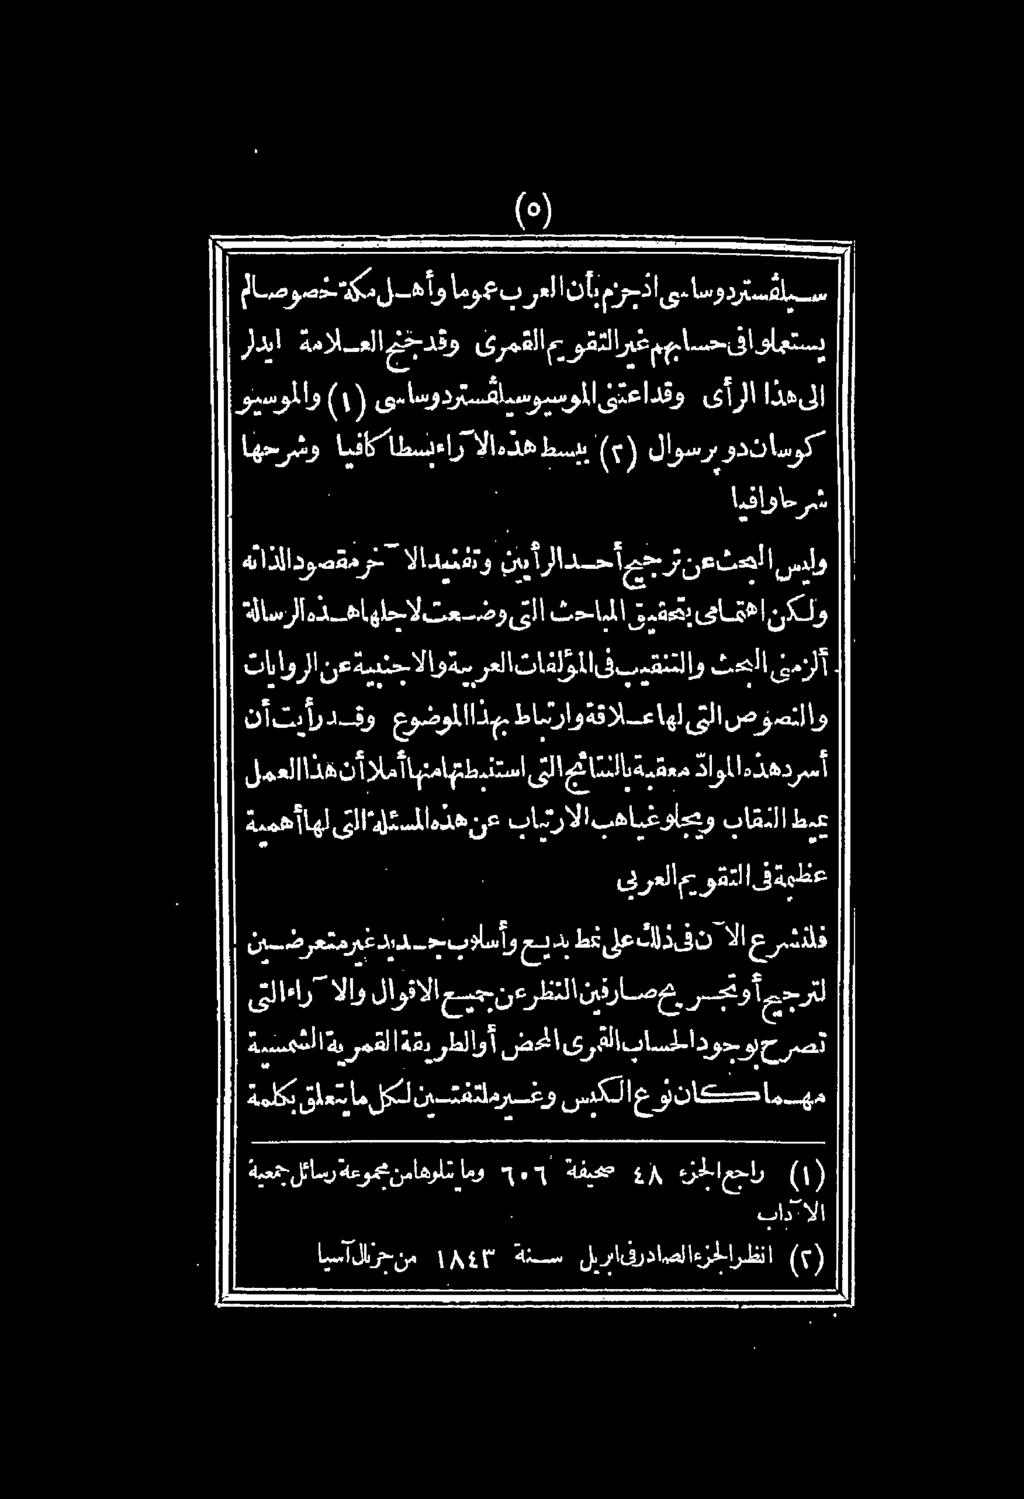 (٥)
سيلڤستردوساسى اذ جزم بأن العرب عموما وأهل مكة خصوصا لم
يستعملوا فى حسابهم غير التقويم القمرى وقد جنح العلامة ايدلر
الى هذا الرأى وقد اعتنى الموسيو سيلڤستردوساسى (١) والموسيو
كوسان دو پرسوال (٢) ببسط هذه الآراء بسطا كافيا وشرحها
شرحا وافيا
وليس البحث عن ترجيح أحد الرأيين وتفنيد الآخر مقصودا لذاته
ولكن اهتمامى بتحقيق المباحث التى وضعت لاجلها هذه الرسالة
ألزمنى البحث والتنقيب فى المؤلفات العربية والاجنبية عن الروايات
والنصوص التى لها علاقة وارتباط بهذا الموضوع وقد رأيت أن
أسرد هذه الموادّ معقبة بالنتائج التى استنبطتها منها أملا أن هذا العمل
يميط النقاب ويجلو غياهب الارتياب عن هذه المسئلة التى لها أهمية
عظيمة فى التقويم العربى
فلنشرع الآن فى ذلك على نمط بديع وأسلوب جديد غير متعرضين
لترجيح أو تجريح صارفين النظر عن جميع الاقوال والآراء التى
تصرح بوجود الحساب القمرى المحض أو الطريقة القمرية الشمسية
مهما كان نوع الكبس وغير ملتفتين لكل ما يتعلق بكلمة
(١) راجع الجزء ٤٨ صحيفة ٦٠٦ وما يتلوها من مجموعة رسائل جمعية
الآداب
(٢) انظر الجزء الصادر فى ابريل سنة ١٨٤٣ من جرنال آسيا